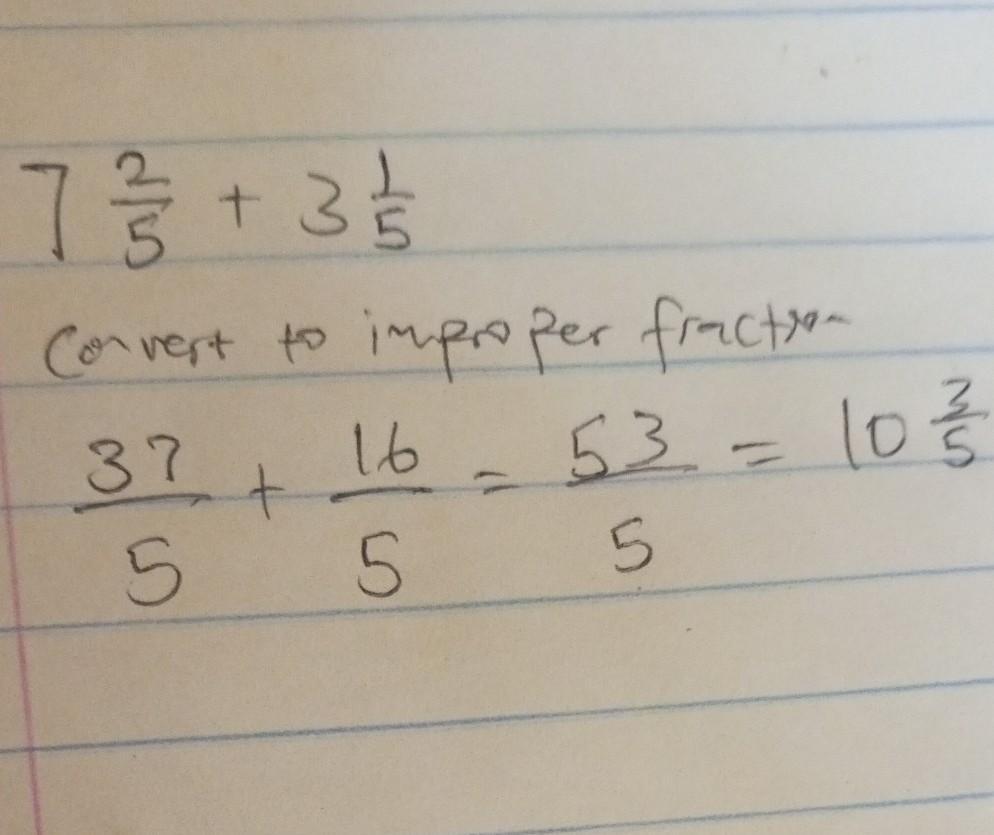 7 2/5 + 3 1/5
Convert to improper fraction
37/5 + 16/5 = 53/5 = 10 3/5